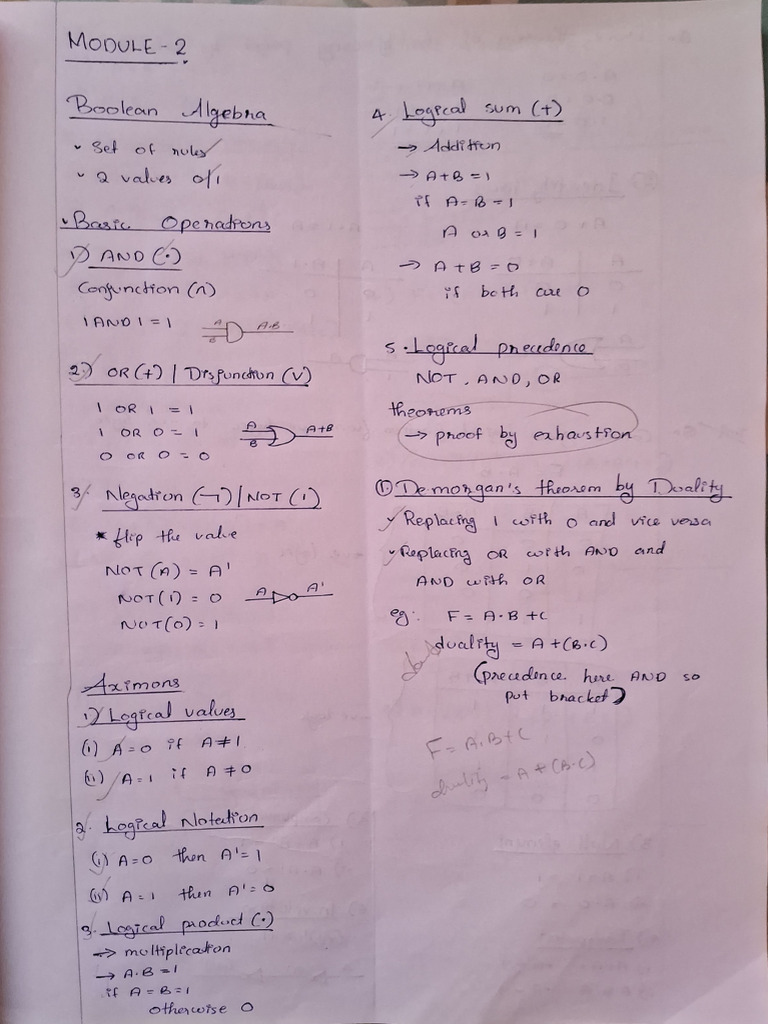 MODULE - 2
Boolean Algebra
• Set of rules
• 2 values 0/1
• Basic Operations
1) AND (•)
Conjunction (∩)
1 AND 1 = 1
A
B
A·B
2) OR (+) | Disjunction (V)
1 OR 1 = 1
1 OR 0 = 1
0 OR 0 = 0
A
B
A+B
3. Negation (¬) | NOT (')
* flip the value
NOT (A) = A'
NOT(1) = 0
NOT(0) = 1
A
A'
Aximons
1) Logical values
(i) A=0 if A≠1
(ii) A=1 if A≠0
2. Logical Notection
(i) A=0 then A'=1
(ii) A=1 then A'=0
3. Logical product (•)
→ multiplication
→ A·B=1
if A=B=1
otherwise 0
4. Logical sum (+)
→ Addition
→ A+B=1
if A=B=1
A or B=1
→ A+B=0
if both are 0
5. Logical precedence
NOT, AND, OR
theorems
→ proof by exhaustion
① Demorgan's theorem by Duality
Replacing 1 with 0 and vice versa
Replacing OR with AND and
AND with OR
eg: F = A·B+C
duality = A+(B·C)
(precedence here AND so
put bracket)
F = A·B+C
duality = A+(B·C)